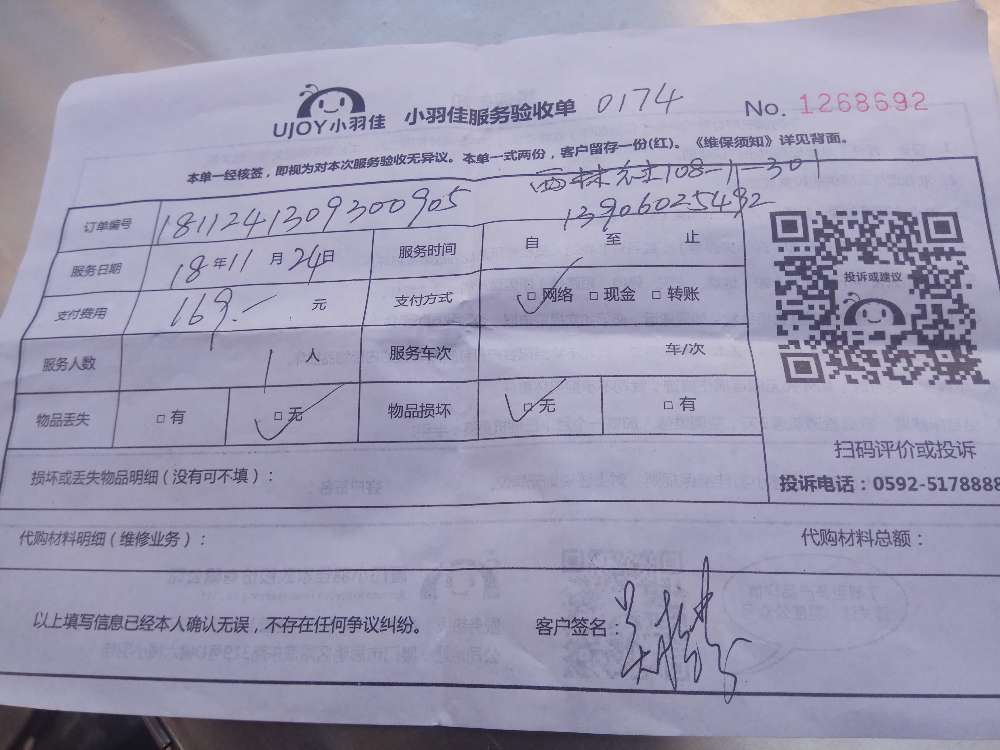 UJOY小羽佳 小羽佳服务验收单 0174 No. 1268692
本单一经核签,即视为对本次服务验收无异议。本单一式两份,客户留存一份(红)。《维保须知》详见背面。
108-11-301
13906025492
订单编号 1811241309300905
服务日期 18年11月24日 服务时间 自 至 止
支付费用 169.- 元 支付方式 □网络 □现金 □转账
服务人数 1人 服务车次 车/次
物品丢失 □有 □无 物品损坏 □无 □有
投诉或建议
扫码评价或投诉
投诉电话:0592-5178888
损坏或丢失物品明细(没有可不填):
代购材料明细(维修业务): 代购材料总额:
以上填写信息已经本人确认无误,不存在任何争议纠纷。 客户签名: